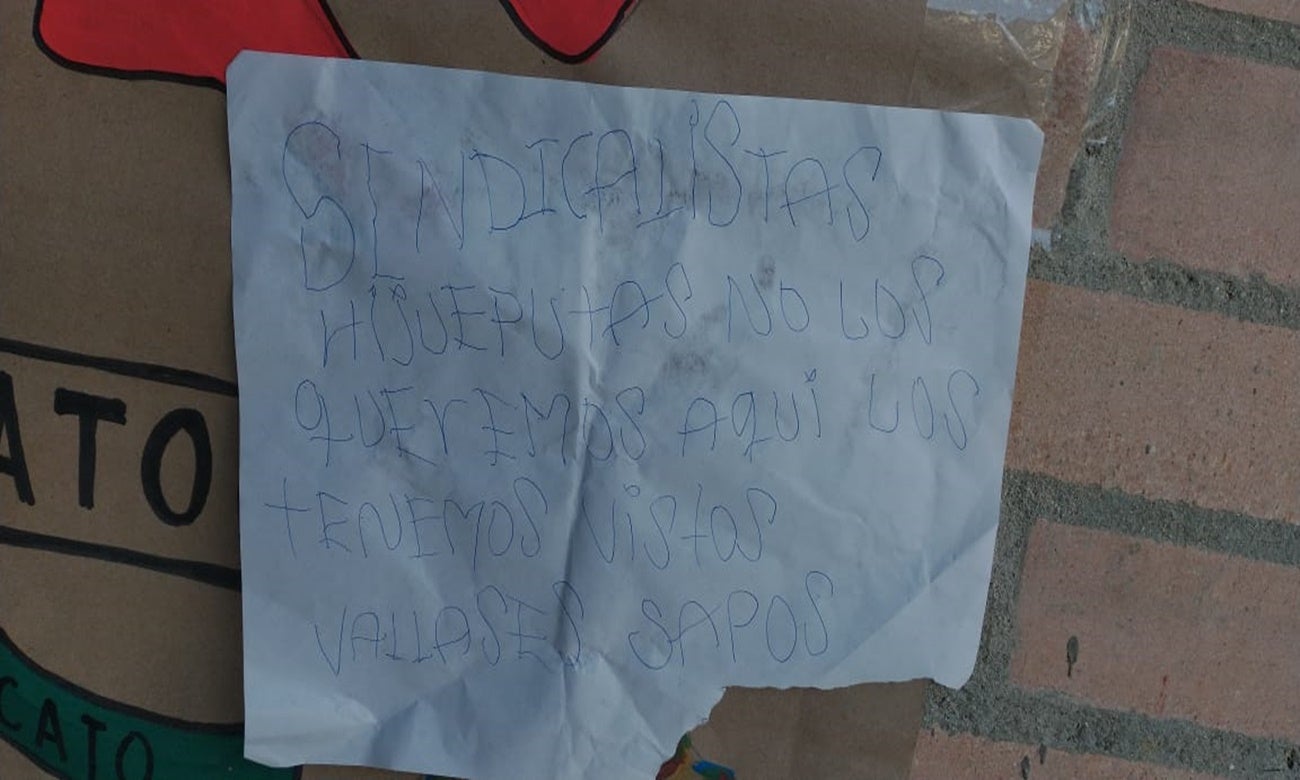 SINDICALISTAS
HIJUEPUTAS NO LOS
QUEREMOS AQUI LOS
TENEMOS VISTOS
VALLASES SAPOS
ATO
CATO